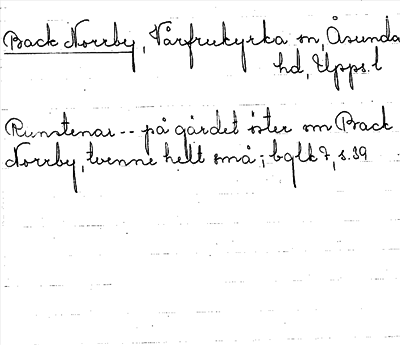 Back Norrby, Vårfrukyrka sn, Åsunda
hd, Upps. l
Runstenar -- på gärdet öster om Back
Norrby, tvenne helt små; bglk 7, s. 39